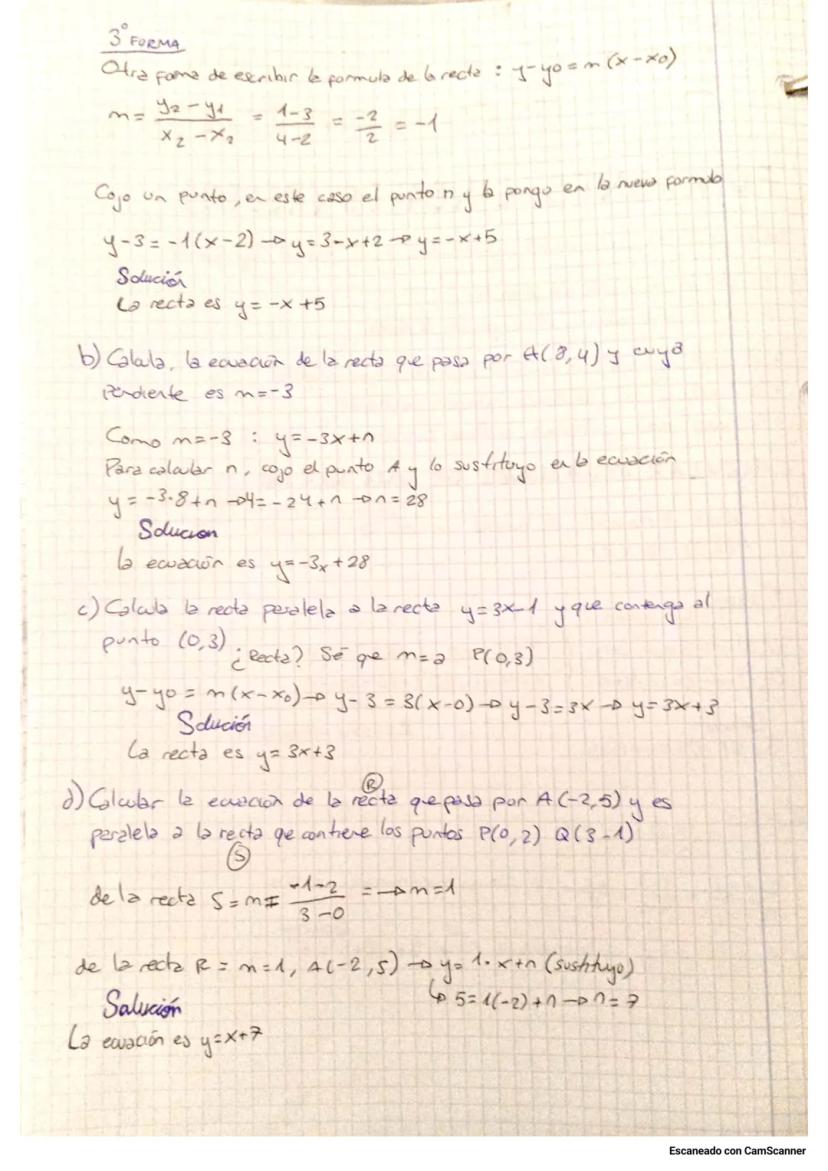 3º FORMA
Otra forma de escribir la formula de la recta : y-y0 = m (x-x0)
m = y2 - y1 / x2 - x2 = 1-3 / 4-2 = -2 / 2 = -1
Cojo un punto, en este caso el punto n y lo pongo en la nueva formula
y-3 = -1(x-2) → y = 3-x+2 → y = -x+5
Solución
La recta es y = -x +5
b) Calcula, la ecuación de la recta que pasa por A(8,4) y cuya
Pendiente es m=-3
Como m=-3 : y=-3x+n
Para calcular n, cojo el punto A y lo sustituyo en la ecuación
y = -3·8+n → 4 = -24+n → n = 28
Solucion
la ecuación es y=-3x+28
c) Calcula la recta paralela a la recta y=3x-1 y que contenga al
punto (0,3)
¿Recta? Sé que m=a P(0,3)
y-y0 = m(x-x0) → y-3 = 3(x-0) → y-3=3x → y=3x+3
Solución
La recta es y= 3x+3
R
d) Calcular la ecuación de la recta que pasa por A(-2,5) y es
paralela a la recta qe contiene los puntos P(0,2) Q(3-1)
S
de la recta S = m = -1-2 / 3-0 = → m=1
de la recta R = m=1, A(-2,5) → y= 1·x+n (sustituyo)
↳ 5=1(-2)+n → n=7
Solución
La ecuación es y=x+7
Escaneado con CamScanner